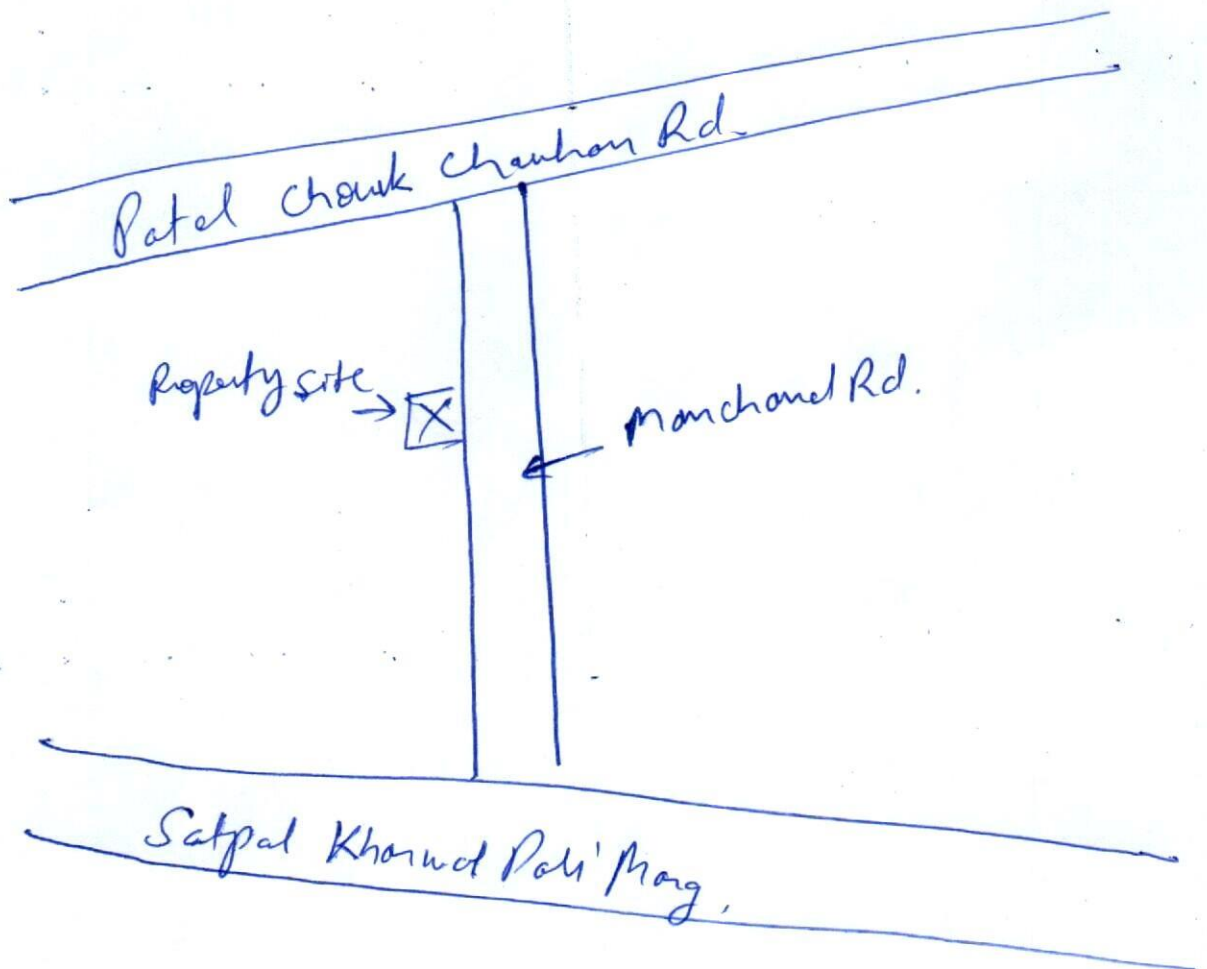 Patel Chowk Chauhan Rd.
Property site
X
Manchand Rd.
Satpal Pali Marg,